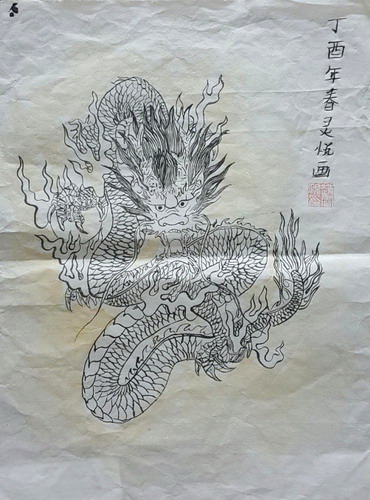 丁酉年春灵悦画